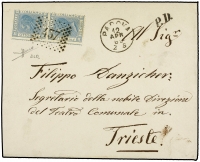 PADOVA
12
APR
P.D.
All Sigr
Filippo Sanzicher
Segretario della nobile Direzione
del Teatro Comunale in
Trieste